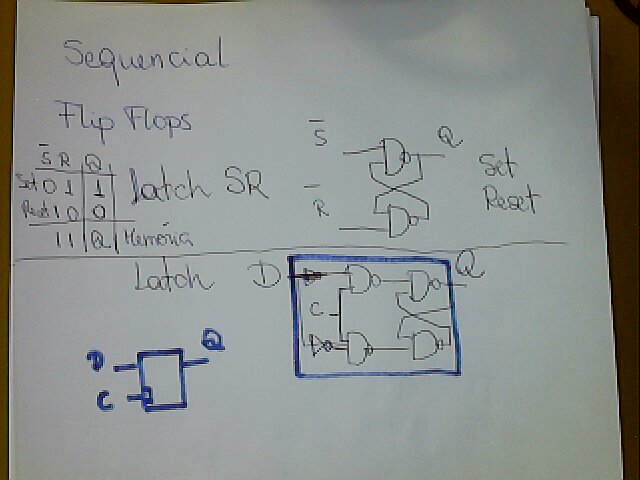 Sequencial
Flip Flops
S̅ R Q
Set 0 1 1
Reset 1 0 0
1 1 Q Memória
Latch SR
S̅
R̅
Q
Set
Reset
Latch D
C
Q
D
C
Q